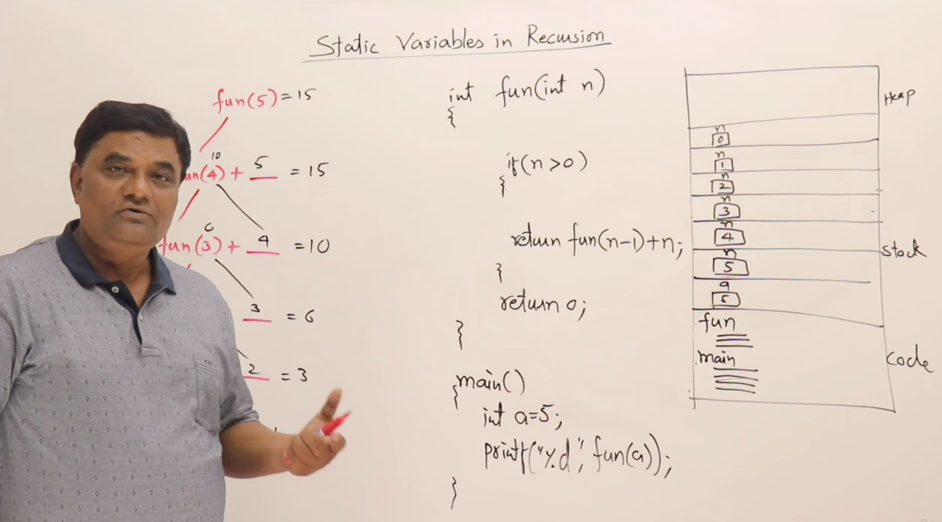 Static Variables in Recursion
fun(5) = 15
10
fun(4) + 5 = 15
6
fun(3) + 4 = 10
3 = 6
2 = 3
int fun(int n)
{
if(n>0)
{
return fun(n-1)+n;
}
return 0;
}
main()
{
int a=5;
printf("%d", fun(a));
}
Heap
n
0
n
1
n
2
n
3
n
4
n
5
a
5
stack
fun
main
code